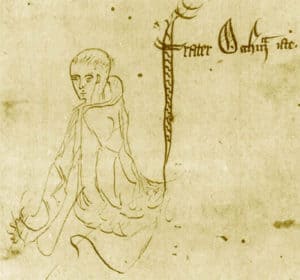 frater Occham iste